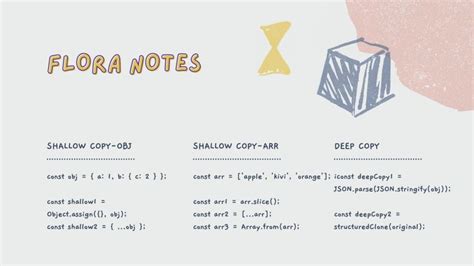 FLORA NOTES
SHALLOW COPY-OBJ
const obj = { a: 1, b: { c: 2 } };
const shallow1 =
Object.assign({}, obj);
const shallow2 = { ...obj };
SHALLOW COPY-ARR
const arr = ['apple', 'kivi', 'orange'];
const arr1 = arr.slice();
const arr2 = [...arr];
const arr3 = Array.from(arr);
DEEP COPY
const deepCopy1 =
JSON.parse(JSON.stringify(obj));
const deepCopy2 =
structuredClone(original);